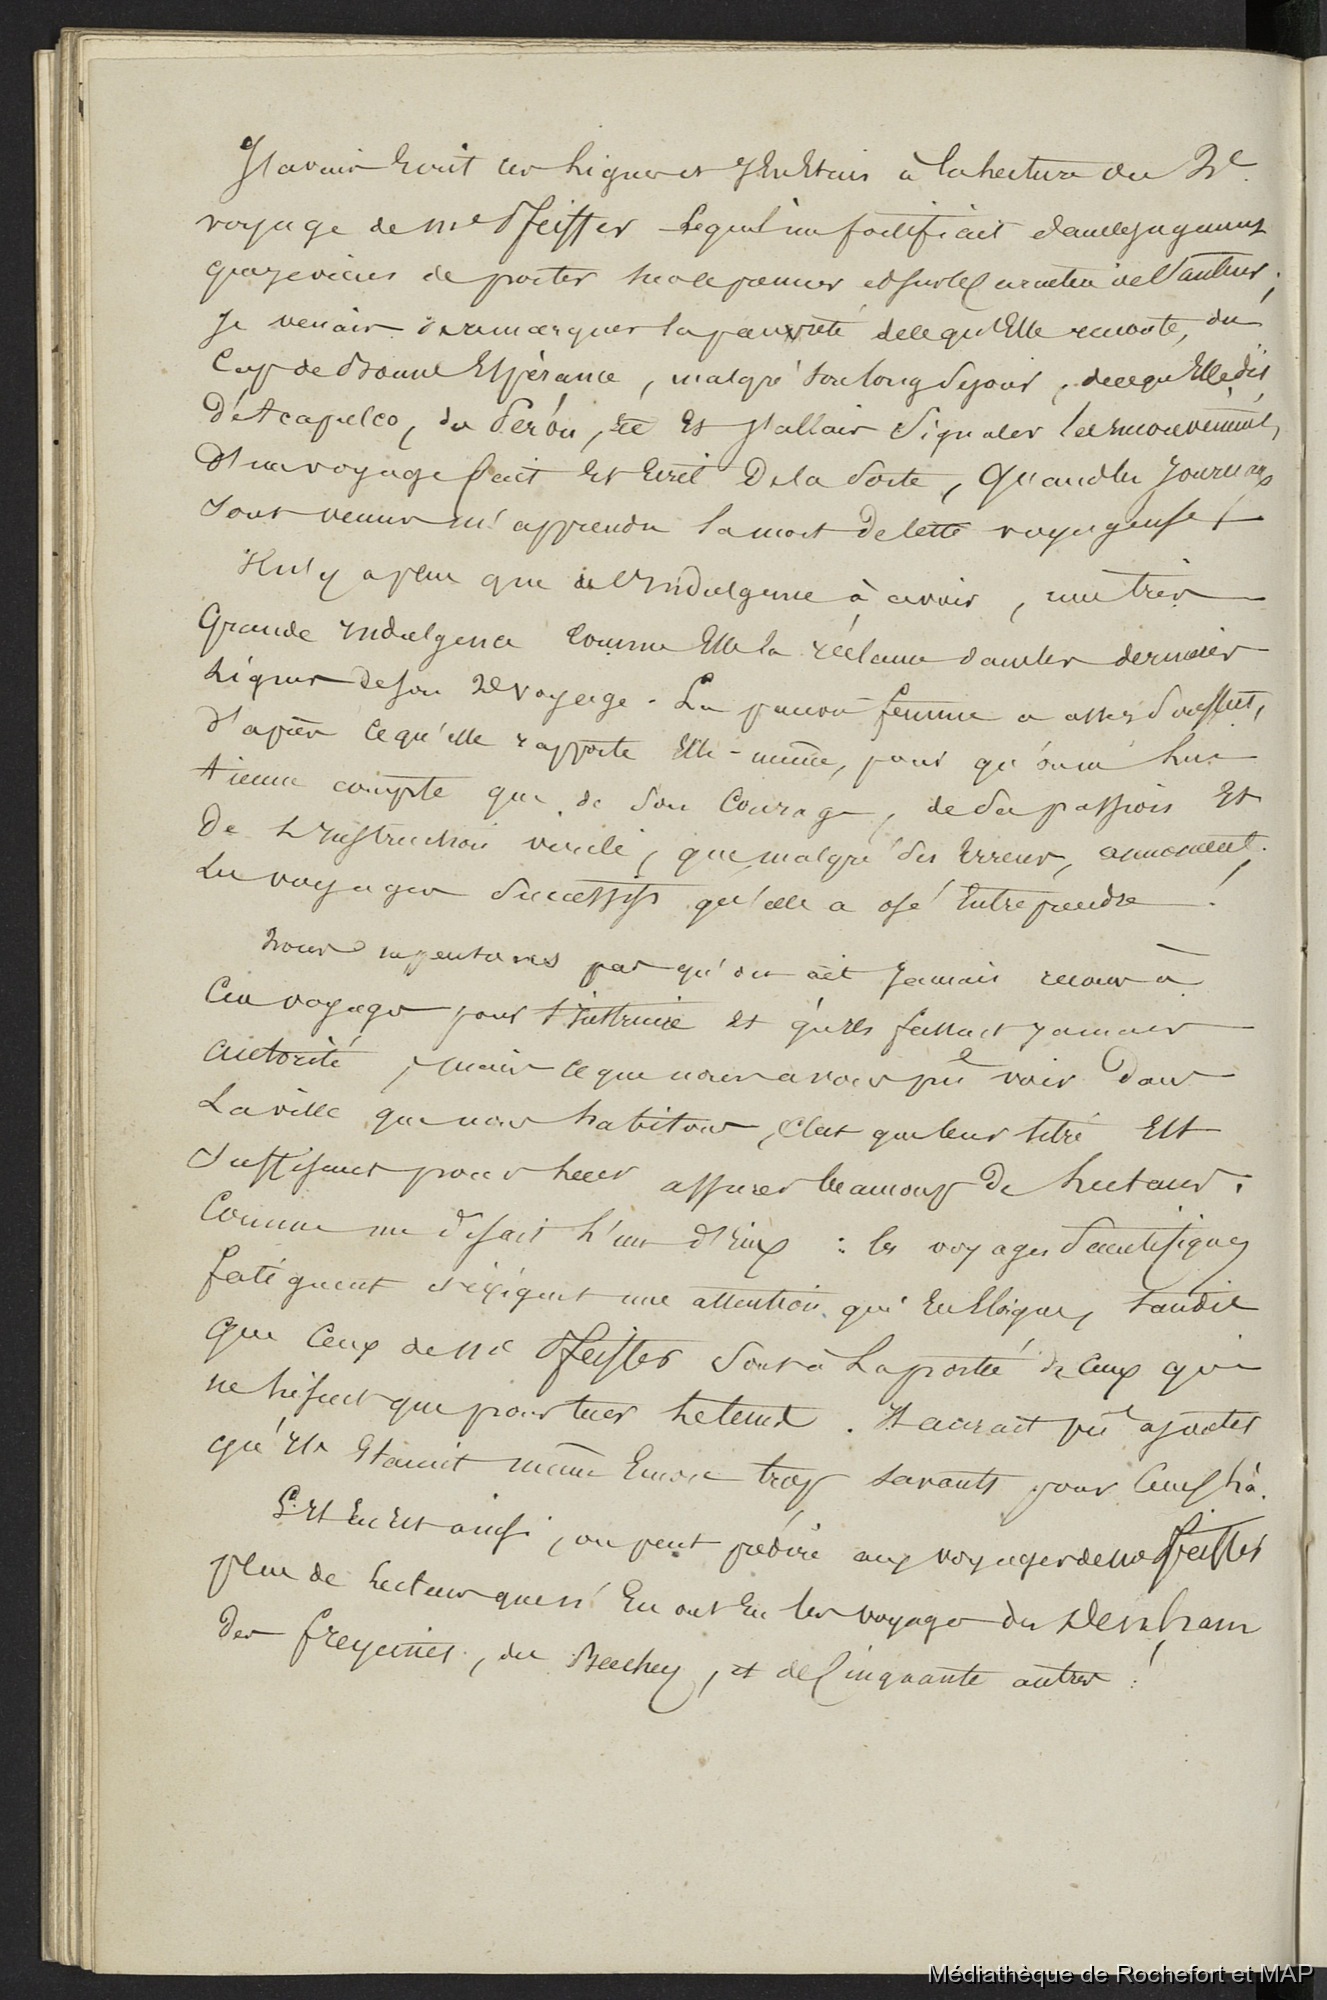 J'avais écrit ces lignes et j'en étais à la lecture du 2e.
voyage de Me Pfeiffer lequel me fortifiait dans le jugement
que je viens de porter sur le premier et sur le caractère de l'auteur;
Je venais de remarquer la pauvreté de ce qu'Elle raconte, du
Cap de Bonne Espérance, malgré son long séjour, de ce qu'Elle dit
d'Acapulco, du Pérou, et j'allais signaler les
d'un voyage fait et écrit de la sorte, quand les journaux
sont venus m'apprendre la mort de cette voyageuse
Il n'y a plus que de l'Indulgence à avoir, une très
Grande Indulgence comme Elle la réclame dans les dernières
lignes de son 2e voyage. La pauvre femme a assez souffert,
d'après ce qu'elle rapporte Elle-même, pour qu'on ne lui
tienne compte que de son Courage, de sa passion Et
De l'Instruction virile, que malgré des Erreurs, annoncent
Les voyages successifs qu'elle a osé Entreprendre!
Nous ne pensons pas qu'on ait Jamais recours à
Ces voyages pour s'instruire Et qu'ils fassent jamais
autorité, mais ce que nous avons pu voir dans
La ville que nous habitons, c'est que leur titre Est
Suffisant pour leur assurer beaucoup De Lecteurs.
Comme me disait l'un d'Eux : les voyages Scientifiques
fatiguent exigent une attention qui En Eloigne, tandis
que Ceux de Me Pfeiffer sont à La portée de Ceux qui
ne lisent que pour tuer le temps. Il aurait pu ajouter
qu'Ils Etaient même Encore trop savants pour Ceux là.
S'Il En Est ainsi, on peut prédire aux voyages de Me Pfeiffer
plus de Lecteurs que n'En ont Eu les voyages des Denham
Des Freycinet, des Beechey, et de Cinquante autres!
Médiathèque de Rochefort et MAP